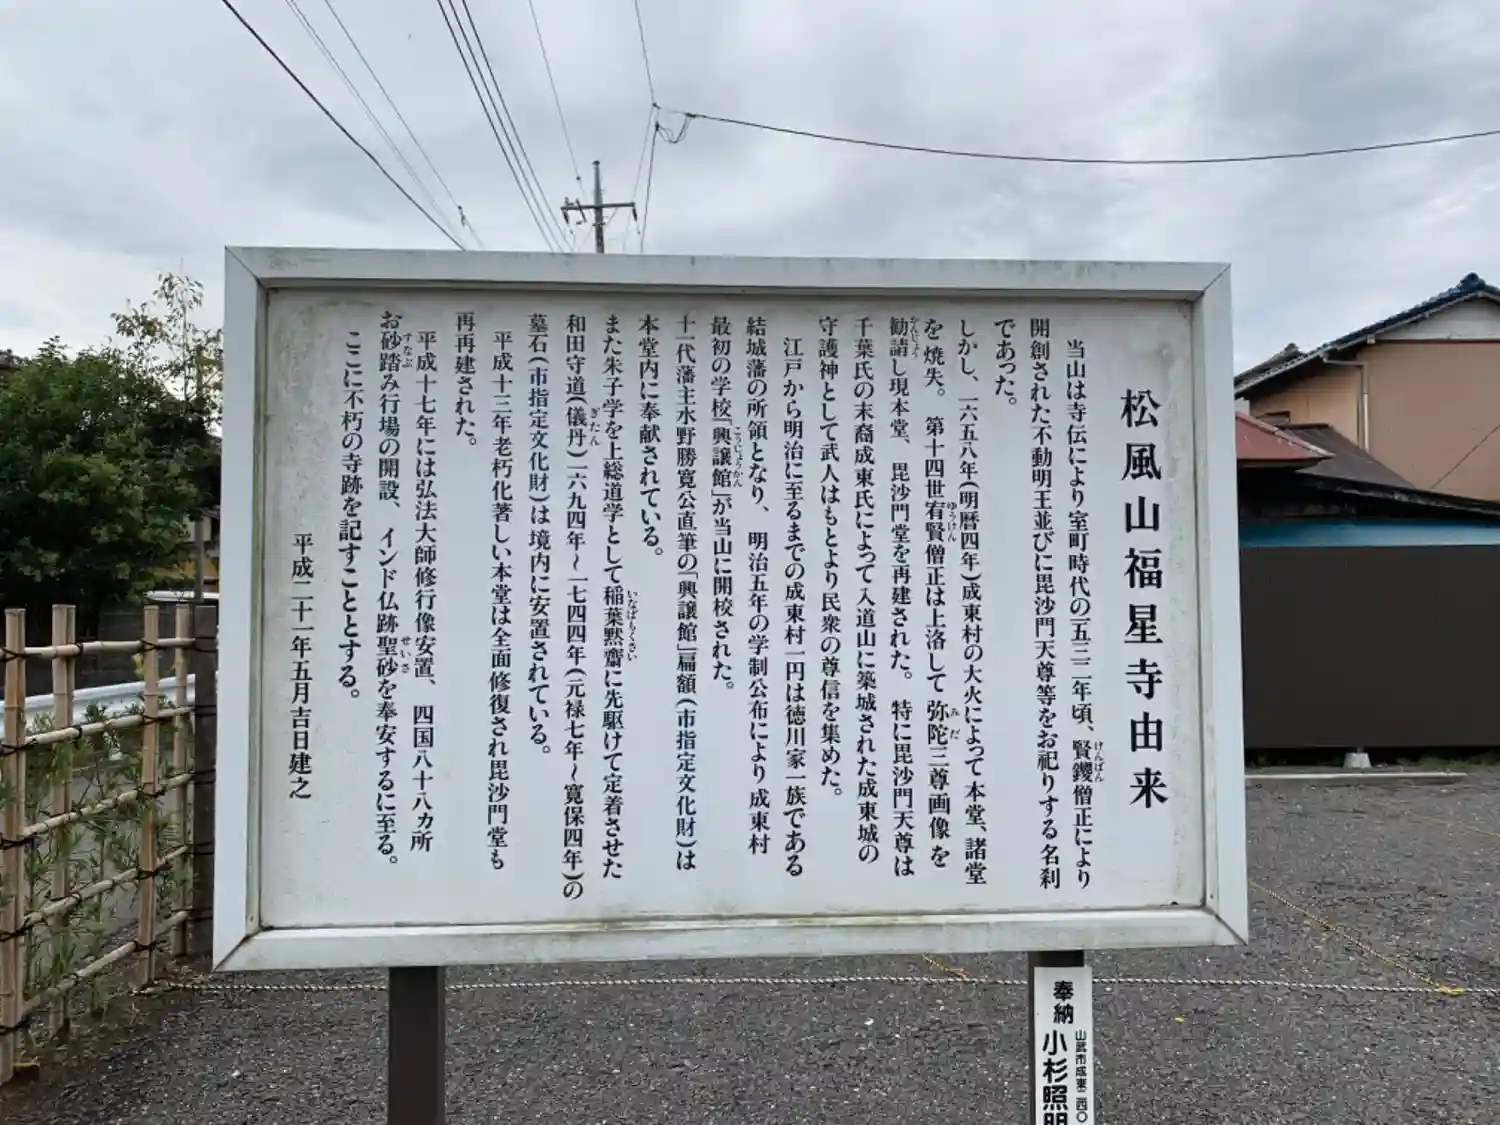 松風山福星寺由来
当山は寺伝により室町時代の一五三二年頃、賢鑁僧正により
けんばん
開創された不動明王並びに毘沙門天尊等をお祀りする名刹
であった。
しかし、一六五八年(明暦四年)成東村の大火によって本堂、諸堂
を焼失。第十四世宥賢僧正は上洛して弥陀三尊画像を
ゆうけん
みだ
勧請し現本堂、毘沙門堂を再建された。特に毘沙門天尊は
かんじょう
千葉氏の末裔成東氏によって入道山に築城された成東城の
守護神として武人はもとより民衆の尊信を集めた。
江戸から明治に至るまでの成東村一円は徳川家一族である
結城藩の所領となり、明治五年の学制公布により成東村
最初の学校「興譲館」が当山に開校された。
こうじょうかん
十一代藩主水野勝寛公直筆の「興譲館」扁額(市指定文化財)は
本堂内に奉献されている。
また朱子学を上総道学として稲葉黙齋に先駆けて定着させた
いなばもくさい
和田守道(儀丹)一六九四年～一七四四年(元禄七年～寛保四年)の
ぎたん
墓石(市指定文化財)は境内に安置されている。
平成十三年老朽化著しい本堂は全面修復され毘沙門堂も
再再建された。
平成十七年には弘法大師修行像安置、四国八十八カ所
お砂踏み行場の開設、インド仏跡聖砂を奉安するに至る。
すなぶ
せいさ
ここに不朽の寺跡を記すこととする。
平成二十一年五月吉日建之
奉納
山武市成東二四〇
小杉照明